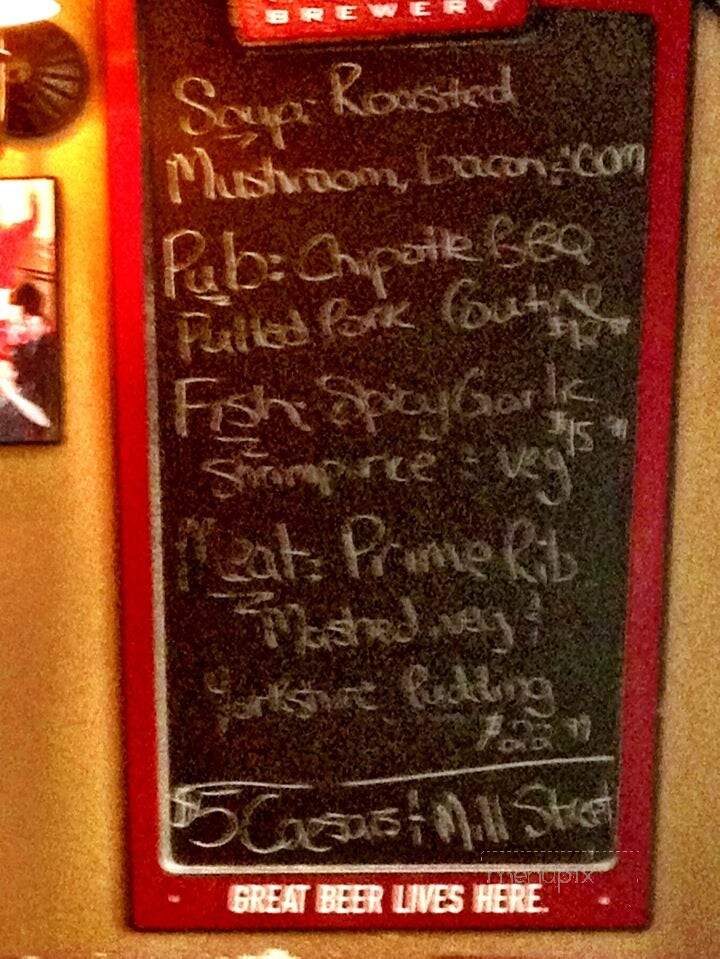 BREWERY
Soup: Roasted
Mushroom, bacon & corn
Pub: Chipotle BBQ
Pulled Pork Poutine
Fish: Spicy Garlic
$15
Shrimp rice & veg
Meat: Prime Rib
Mashed, veg &
Yorkshire Pudding
$22
$5 Caesars & Mill Street
menupix
GREAT BEER LIVES HERE.